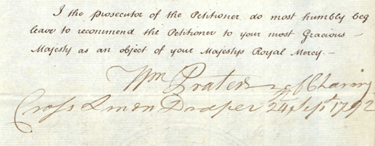 I the prosecutor of the Petitioner do most humbly beg
leave to recommend the Petitioner to your most Gracious
Majesty as an object of your Majestys Royal Mercy. —
Wm Prater of Charing
Cross Linen Draper 24 Sept 1792